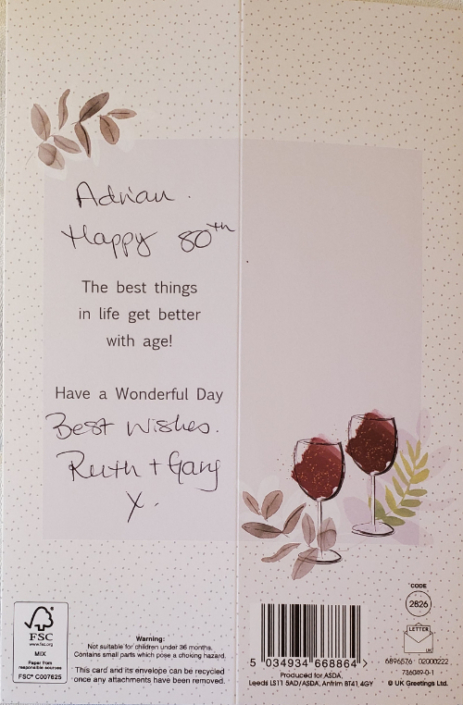 Adrian.
Happy 80th
The best things
in life get better
with age!
Have a Wonderful Day
Best Wishes.
Ruth + Gary
X.
FSC
www.fsc.org
MIX
Paper from
responsible sources
FSC® C007625
Warning:
Not suitable for children under 36 months.
Contains small parts which pose a choking hazard.
This card and its envelope can be recycled
once any attachments have been removed.
5 034934 668864 >
Produced for ASDA.
Leeds LS11 5AD/ASDA, Antrim BT41 4GY
CODE
2826
LETTER
UK
02000222
© UK Greetings Ltd.